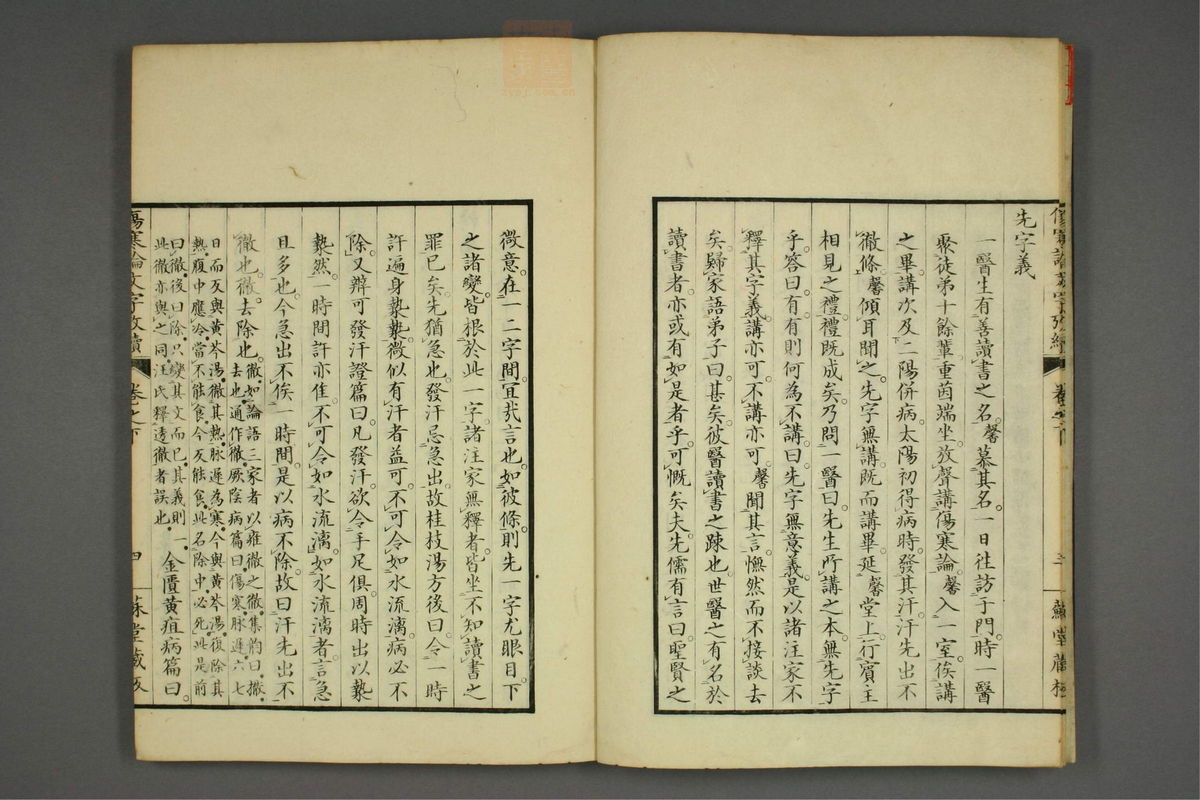 先字義
一醫生有善讀書之名馨慕其名一日往訪于門時一醫
聚徒弟十餘輩重茵端坐放聲講傷寒論馨入一室俟講
之畢講次及二陽併病太陽初得病時發其汗汗先出不
徹條馨傾耳聞之先字無講既而講畢延馨堂上行賓主
相見之禮禮既成矣乃問一醫曰先生所講之本無先字
乎答曰有有則何為不講曰先字無意義是以諸注家不
釋其字義講亦可不講亦可馨聞其言憮然而不接談去
矣歸家語弟子曰甚矣彼醫讀書之踈也世醫之有名於
讀書者亦或有如是者乎可慨矣夫先儒有言曰聖賢之
微意在一二字間宜哉言也如彼條則先一字尤眼目下
之諸變皆根於此一字諸注家無釋者皆坐不知讀書之
罪已矣先猶急也發汗忌急出故桂枝湯方後曰令一時
許遍身漐漐微似有汗者益可不可令如水流漓病必不
除又辨可發汗證篇曰凡發汗欲令手足俱周時出以漐
漐然一時間許亦佳不可令如水流漓如水流漓者言急
且多也今急出不俟一時間是以病不除故曰汗先出不
徹也徹去除也徹如論語三家者以雍徹之徹集韵曰撤
去也通作徹厥陰病篇曰傷寒脉遲六七
日而反與黃芩湯徹其熱脉遲為寒今與黃芩湯復除其
熱腹中應冷當不能食今反能食此名除中必死此是前
曰徹後曰除只變其文而已其義則一
此徹亦與之同汪氏釋透徹者誤也
金匱黃疸病篇曰
傷寒論文字攷續
卷之下
四
蘇堂藏板